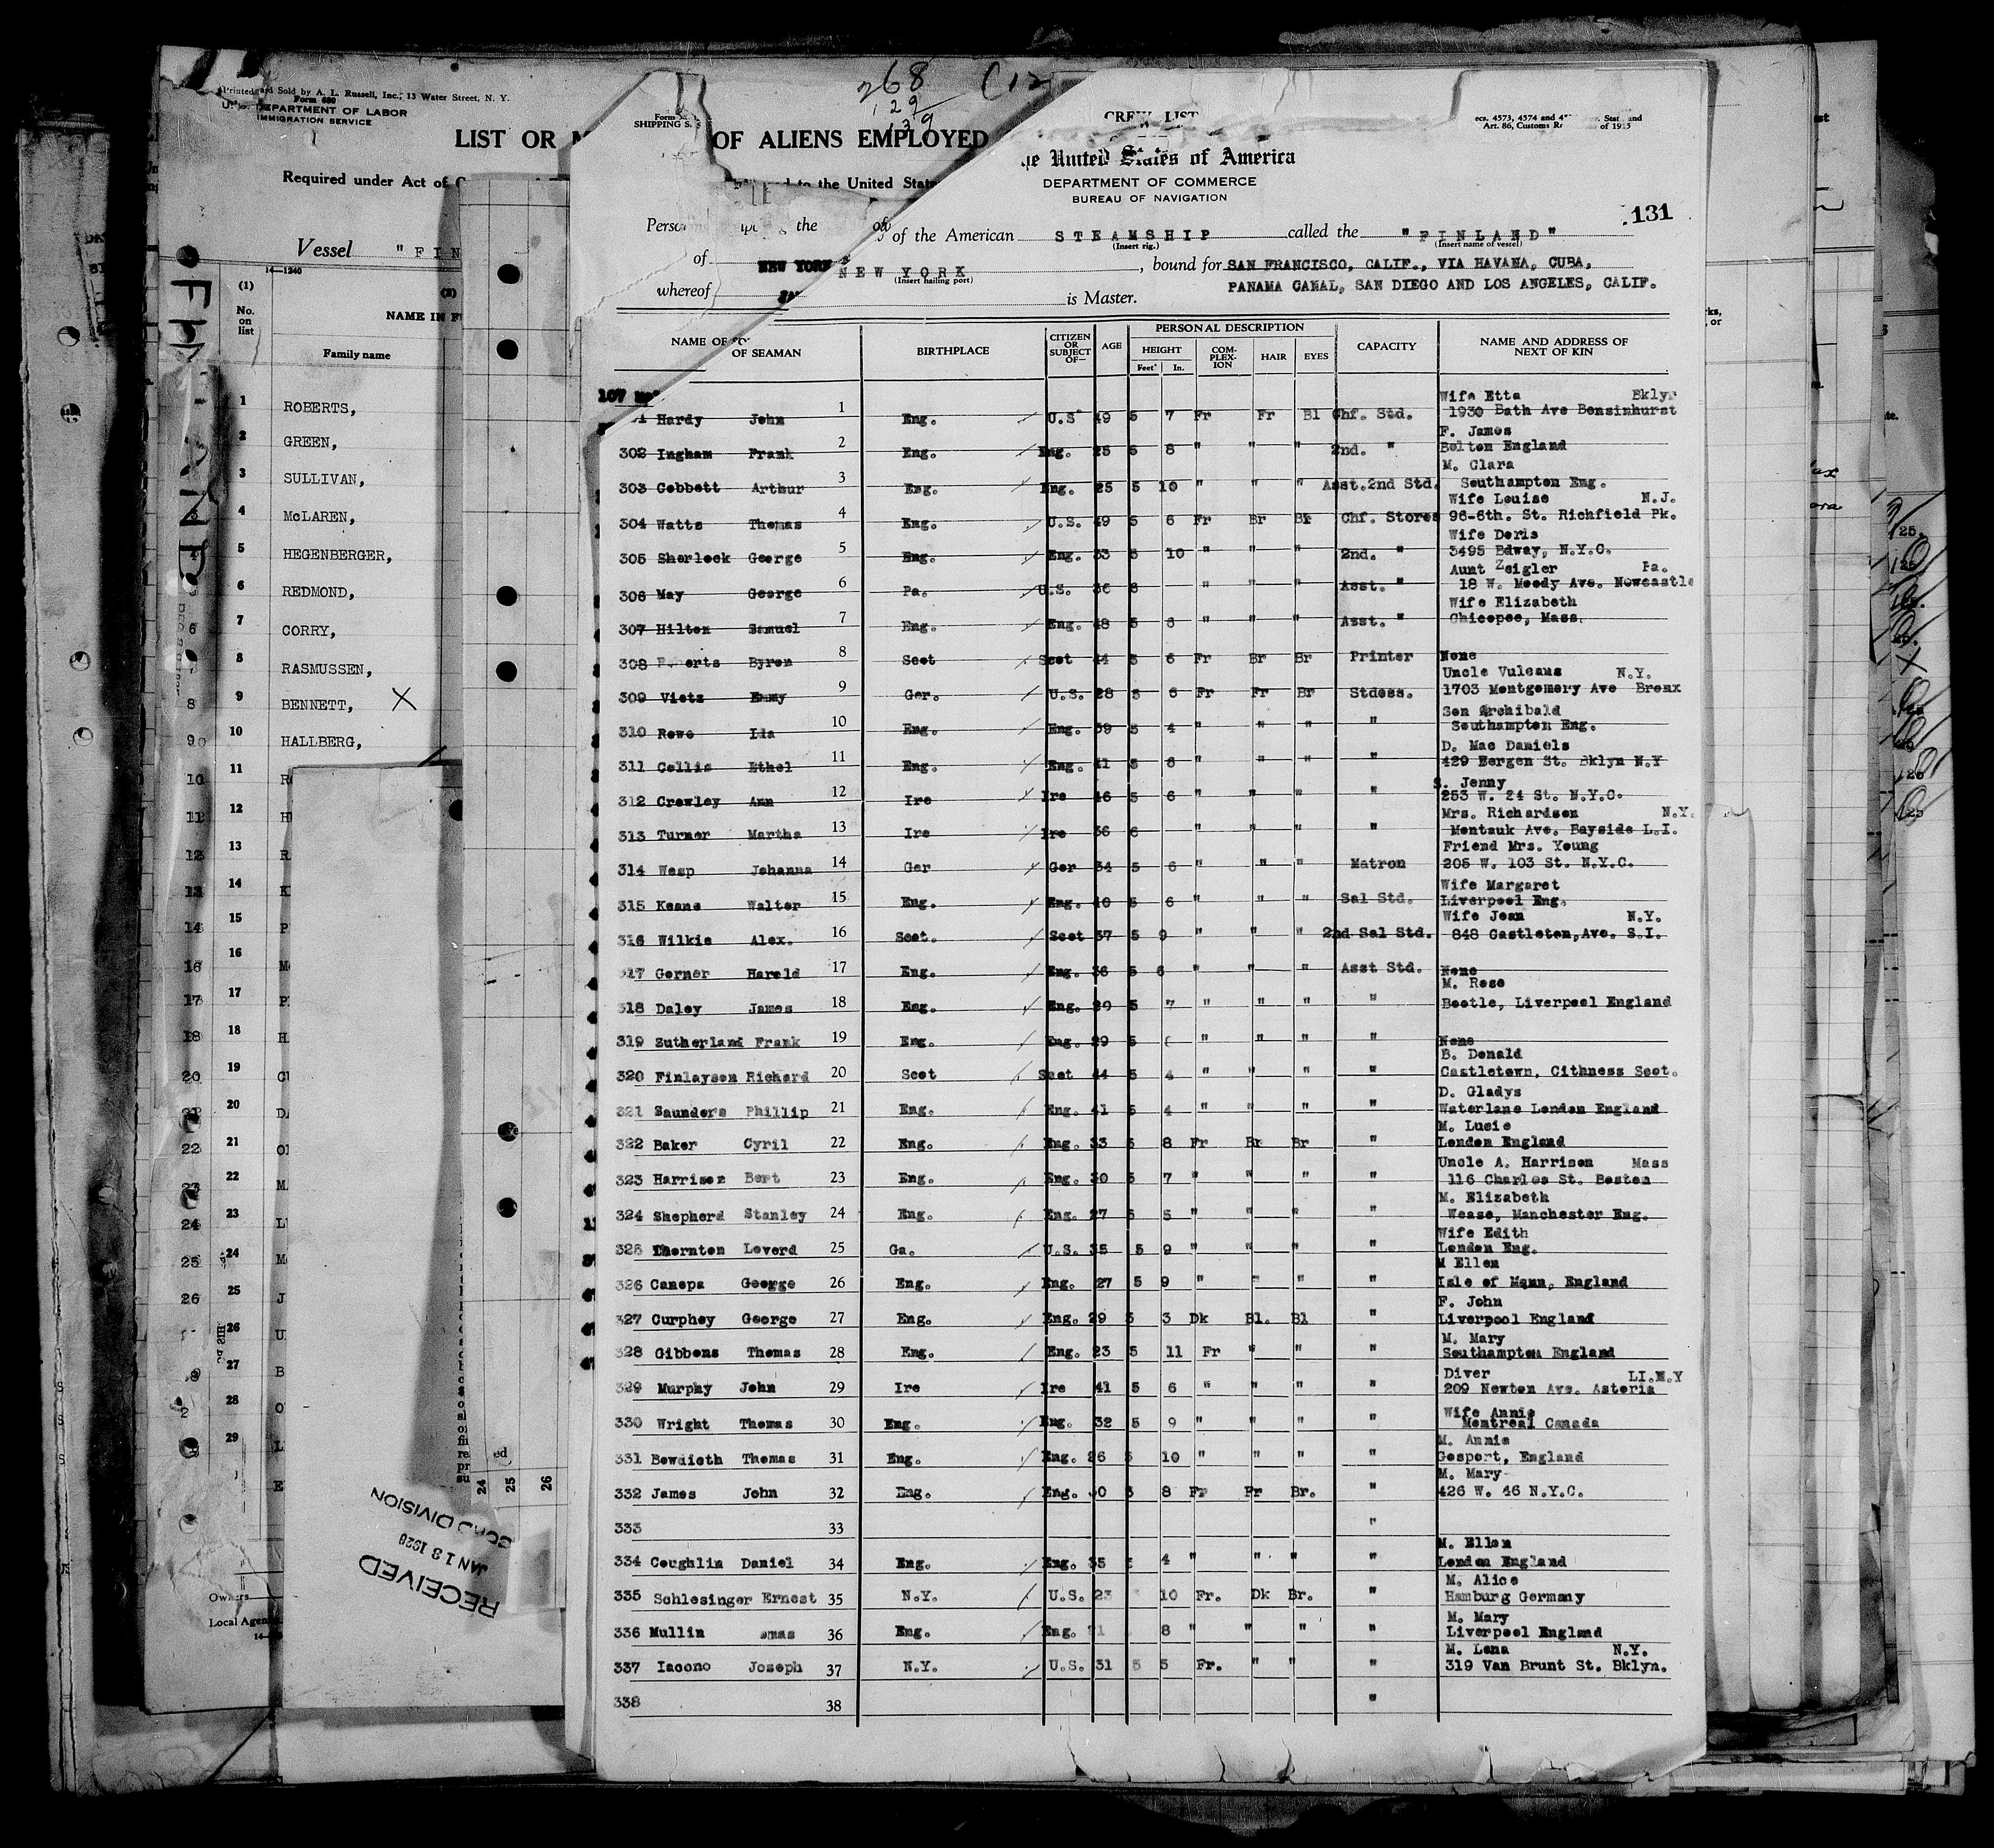 268 (12
129
139
Printed and Sold by A. L. Russell, Inc., 13 Water Street, N. Y.
Form 680
U. S. DEPARTMENT OF LABOR
IMMIGRATION SERVICE
LIST OR M OF ALIENS EMPLOYED
Required under Act of
to the United Stat
Vessel "FIN
14—1240
(1)
No. on list
NAME IN F
Family name
1 ROBERTS,
2 GREEN,
3 SULLIVAN,
4 McLAREN,
5 HEGENBERGER,
6 REDMOND,
7 CORRY,
8 RASMUSSEN,
9 BENNETT, X
10 HALLBERG,
11
12
13
14
15
16
17
18
19
20
21
22
23
24
25
26
27
28
29
Owners
Local Agen
RECEIVED
JAN 13 1926
DIVISION
24 25 26
Form
SHIPPING S.
CREW LIST
ecs. 4573, 4574 and
Stat. and
Art. 86, Customs Re of 1915
United States of America
DEPARTMENT OF COMMERCE
BUREAU OF NAVIGATION
131
the of the American STEAMSHIP called the "FINLAND"
(Insert rig.) (Insert name of vessel)
of NEW YORK NEW YORK, bound for SAN FRANCISCO, CALIF., VIA HAVANA, CUBA,
(Insert hailing port)
whereof is Master. PANAMA CANAL, SAN DIEGO AND LOS ANGELES, CALIF.
NAME OF SEAMAN BIRTHPLACE CITIZEN OR SUBJECT OF— AGE PERSONAL DESCRIPTION CAPACITY NAME AND ADDRESS OF NEXT OF KIN
HEIGHT COMPLEXION HAIR EYES
Feet In.
107
Wife Etta Bklyn
1 Hardy John 1 Eng. U.S 49 5 7 Fr Fr Bl Chf. Std. 1930 Bath Ave Bensinhurst
F. James
302 Ingham Frank 2 Eng. Eng. 25 5 8 " " " 2nd. " Bolton England
M. Clara
303 Gebbett Arthur 3 Eng. Eng. 25 5 10 " " " Asst.2nd Std. Southampton Eng.
Wife Louise N.J.
304 Watts Thomas 4 Eng. U.S. 49 5 6 Fr Br Br Chf. Stores 96-6th. St. Richfield Pk.
Wife Doris
305 Sherlock George 5 Eng. Eng. 33 5 10 " " " 2nd. " 3495 Bdway, N.Y.C.
Aunt Zeigler Pa.
306 May George 6 Pa. U.S. 36 6 " " " Asst. " 18 W. Moody Ave. Newcastle
Wife Elizabeth
307 Hilton Samuel 7 Eng. Eng. 48 5 6 " " " Asst. " Chicopee, Mass.
308 Byron 8 Scot Scot 44 5 6 Fr Br Br Printer None
Uncle Vulcans N.Y.
309 Vietz Emmy 9 Ger. U.S. 28 5 6 Fr Fr Br Stdess. 1703 Montgomery Ave Bronx
Son Archibald
310 Rowe Ida 10 Eng. Eng. 39 5 4 " " " " Southampton Eng.
D. Mac Daniels
311 Collis Ethel 11 Eng. Eng. 41 5 6 " " " " 429 Bergen St. Bklyn N.Y
S. Jenny
312 Crowley Ann 12 Ire Ire 46 5 6 " " " " 253 W. 24 St. N.Y.C.
Mrs. Richardson N.Y.
313 Turner Martha 13 Ire Ire 36 6 " " " " Montauk Ave. Bayside L.I.
Friend Mrs. Young
314 Wesp Johanna 14 Ger Ger 34 5 6 " " " Matron 205 W. 103 St. N.Y.C.
Wife Margaret
315 Keane Walter 15 Eng. Eng. 40 5 6 " " " Sal Std. Liverpool Eng.
Wife Jean N.Y.
316 Wilkie Alex. 16 Scot. Scot 37 5 9 " " " 2nd Sal Std. 848 Castleton, Ave. S.I.
317 Gerner Harold 17 Eng. Eng. 36 5 6 " " " Asst Std. None
M. Rose
318 Daley James 18 Eng. Eng. 29 5 7 " " " " Bootle, Liverpool England
319 Sutherland Frank 19 Eng. Eng. 29 5 " " " " None
B. Donald
320 Finlayson Richard 20 Scot Scot 44 5 4 " " " " Castletown, Cithness Scot.
D. Gladys
321 Saunders Phillip 21 Eng. Eng. 41 5 4 " " " " Waterlane London England
M. Lucie
322 Baker Cyril 22 Eng. Eng. 33 5 8 Fr Br Br " London England
Uncle A. Harrison Mass
323 Harrison Bert 23 Eng. Eng. 30 5 7 " " " " 116 Charles St. Boston
M. Elizabeth
324 Shepherd Stanley 24 Eng. Eng. 27 5 5 " " " " Wease, Manchester Eng.
Wife Edith
325 Thornton Loverd 25 Ga. U.S. 35 5 9 " " " " London Eng.
M Ellen
326 Canepa George 26 Eng. Eng. 27 5 9 " " " " Isle of Mann, England
F. John
327 Curphey George 27 Eng. Eng. 29 5 3 Dk Bl. Bl " Liverpool England
M. Mary
328 Gibbons Thomas 28 Eng. Eng. 23 5 11 Fr " " " Southampton England
Diver LI.N.Y
329 Murphy John 29 Ire Ire 41 5 6 " " " " 209 Newton Ave. Astoria
Wife Annie
330 Wright Thomas 30 Eng. Eng. 32 5 9 " " " " Montreal Canada
M. Annie
331 Bowdioth Thomas 31 Eng. Eng. 26 5 10 " " " " Gosport, England
M. Mary
332 James John 32 Eng. Eng. 30 5 8 Fr Br Br. " 426 W. 46 N.Y.C.
333 33 "
M. Ellen
334 Coughlin Daniel 34 Eng. Eng. 35 4 " " " " London England
M. Alice
335 Schlesinger Ernest 35 N.Y. U.S. 23 10 Fr. Dk Br. " Hamburg Germany
M. Mary
336 Mullin omas 36 Eng. Eng. 8 " " " " Liverpool England
M. Lena N.Y.
337 Iacono Joseph 37 N.Y. U.S. 31 5 5 Fr. " " " 319 Van Brunt St. Bklyn.
338 38 "